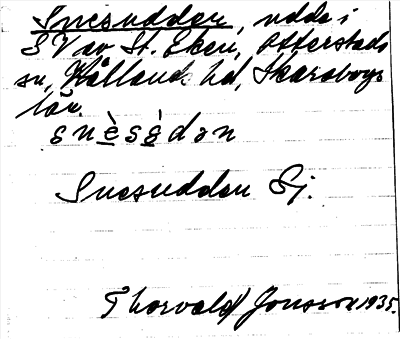 Snesudden, udde i
SV av St. Eken, Otterstads
sn, Kållands hd, Skaraborgs
län.
snèsèdən
Snesudden Sj.
Thorvald Jonsson 1935.